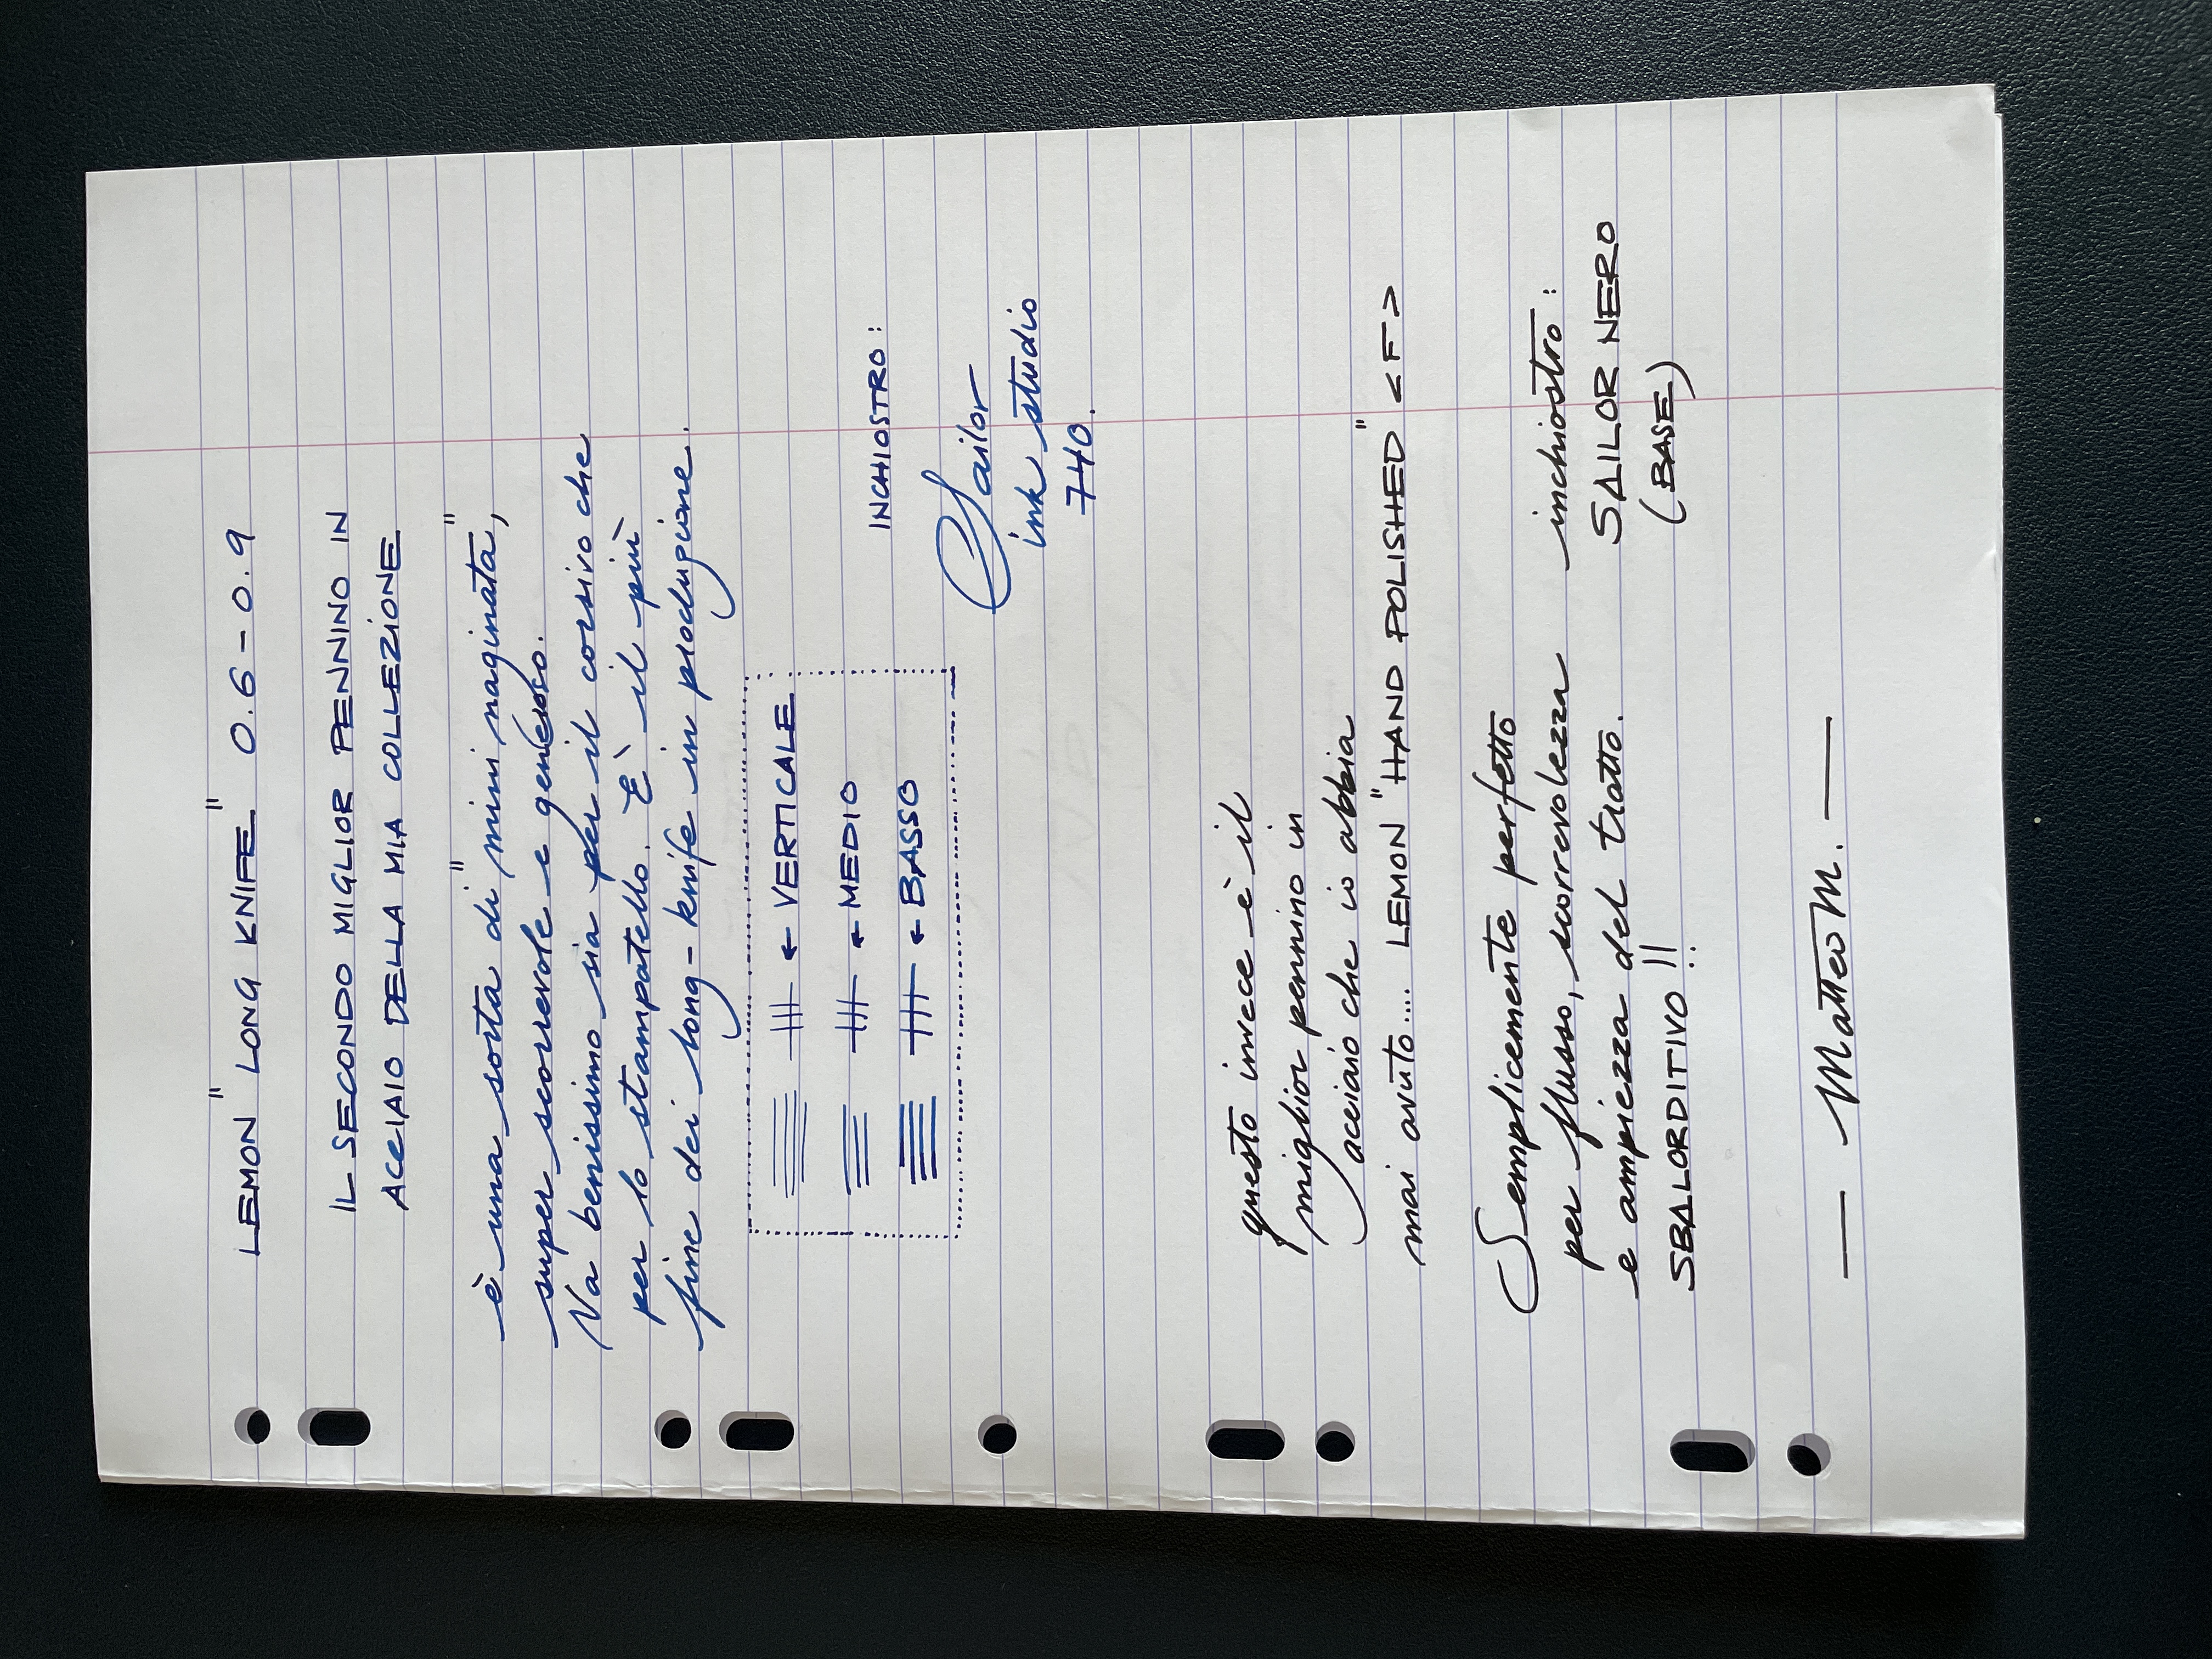 LEMON "LONG KNIFE" 0.6-0.9
IL SECONDO MIGLIOR PENNINO IN
ACCIAIO DELLA MIA COLLEZIONE
è una sorta di "mini naginata",
super scorrevole e generoso.
Va benissimo sia per il corsivo che
per lo stampatello. È il più
fine dei long-knife in produzione.
← VERTICALE
← MEDIO
← BASSO
INCHIOSTRO:
Sailor
ink studio
740.
questo invece è il
miglior pennino in
acciaio che io abbia
mai avuto.... LEMON "HAND POLISHED" <F>
Semplicemente perfetto
per flusso, scorrevolezza
e ampiezza del tratto.
SBALORDITIVO!!
inchiostro:
SAILOR NERO
(BASE)
— Matteo M. —